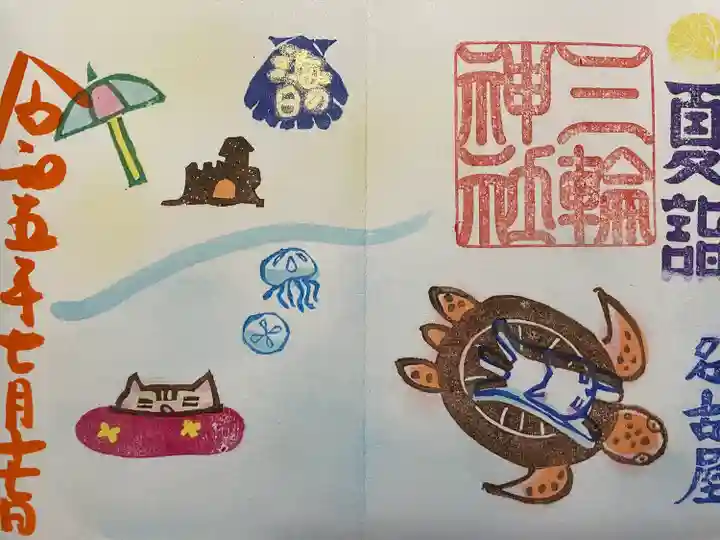 夏詣
名古屋
三輪
神社
海の
日
令和五年七月十七日